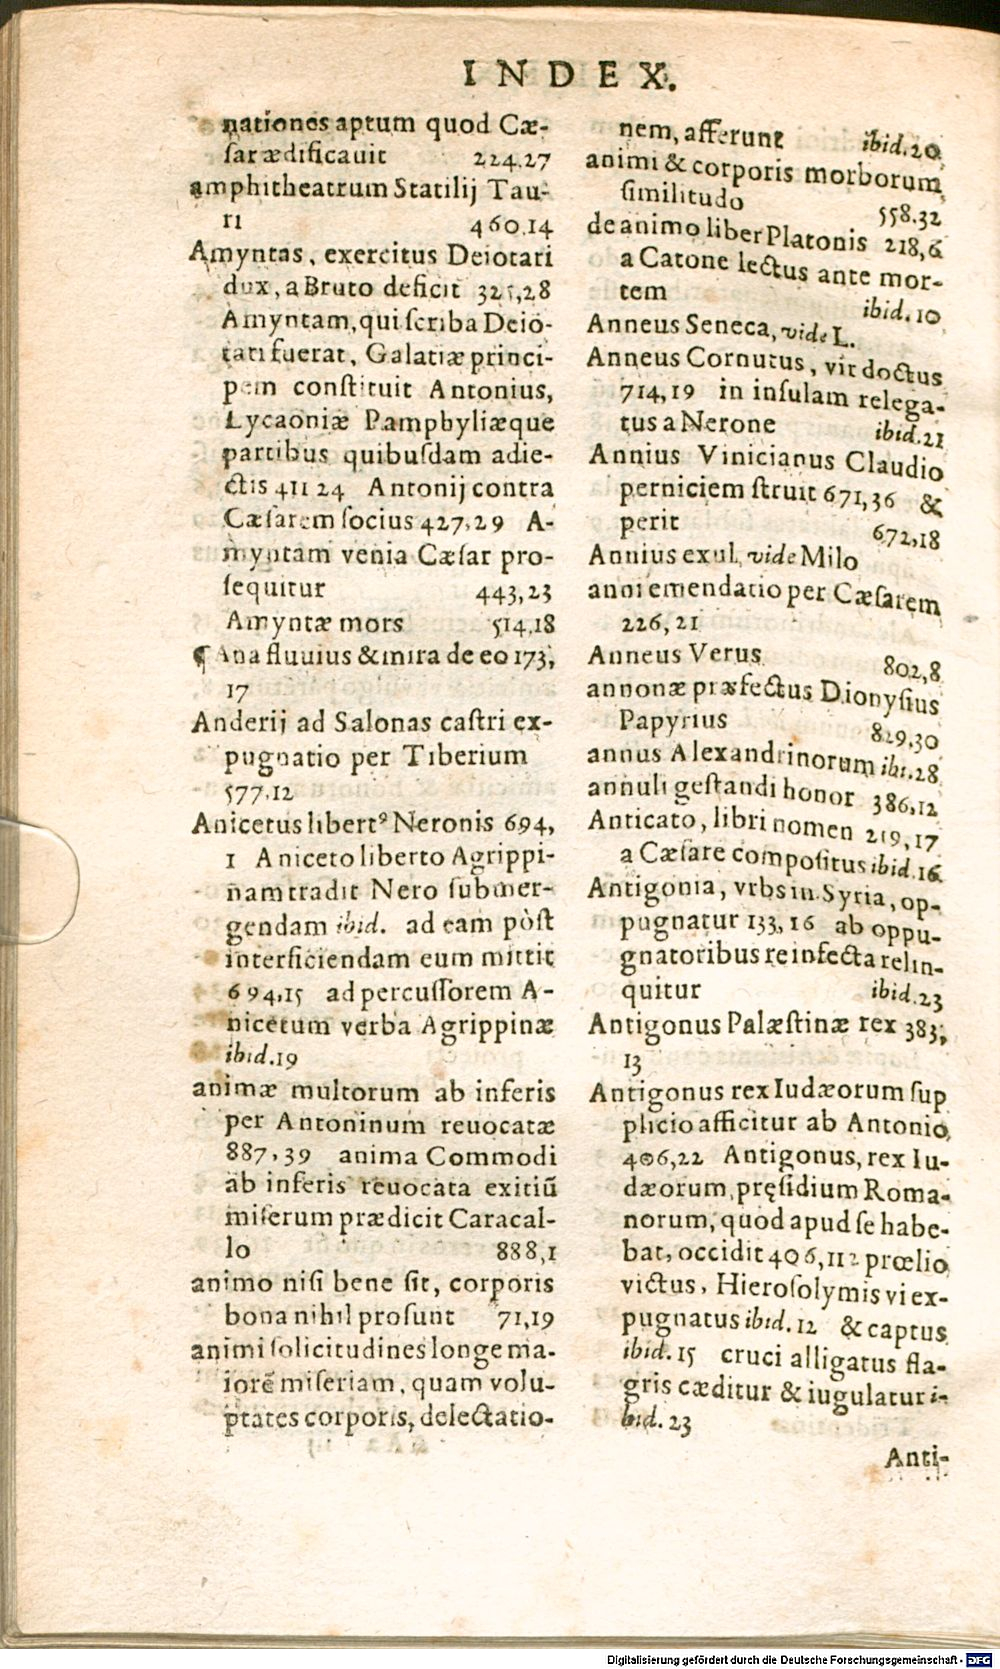 INDEX.
nationes aptum quod Cæ-
ſar ædificauit 224.27
amphitheatrum Statilij Tau-
ri 460.14
Amyntas, exercitus Deiotari
dux, a Bruto deficit 325,28
Amyntam, qui ſcriba Deio-
tari fuerat, Galatiæ princi-
pem conſtituit Antonius,
Lycaoniæ Pamphyliæque
partibus quibuſdam adie-
ctis 411 24 Antonij contra
Cæſarem ſocius 427,29 A-
myntam venia Cæſar pro-
ſequitur 443,23
Amyntæ mors 514,18
¶ Ana fluuius & mira de eo 173,
17
Anderij ad Salonas caſtri ex-
pugnatio per Tiberium
577.12
Anicetus libertꝰ Neronis 694,
1 Aniceto liberto Agrippi-
nam tradit Nero ſubmer-
gendam ibid. ad eam pòſt
interficiendam eum mittit
694,15 ad percuſſorem A-
nicetum verba Agrippinæ
ibid.19
animæ multorum ab inferis
per Antoninum reuocatæ
887,39 anima Commodi
ab inferis reuocata exitiū
miſerum prædicit Caracal-
lo 888,1
animo niſi bene ſit, corporis
bona nihil proſunt 71,19
animi ſolicitudines longe ma-
iorē miſeriam, quam volu-
ptates corporis, delectatio-
nem, afferunt ibid.20
animi & corporis morborum
ſimilitudo 558.32
de animo liber Platonis 218,6
a Catone lectus ante mor-
tem ibid.10
Anneus Seneca, vide L.
Anneus Cornutus, vir doctus
714,19 in inſulam relega-
tus a Nerone ibid.21
Annius Vinicianus Claudio
perniciem ſtruit 671,36 &
perit 672,18
Annius exul, vide Milo
anni emendatio per Cæſarem
226,21
Anneus Verus 802,8
annonæ præfectus Dionyſius
Papyrius 829,30
annus Alexandrinorum ibi.28
annuli geſtandi honor 386,12
Anticato, libri nomen 219,17
a Cæſare compoſitus ibid.16
Antigonia, vrbs in Syria, op-
pugnatur 133,16 ab oppu-
gnatoribus re infecta relin-
quitur ibid.23
Antigonus Palæſtinæ rex 383,
13
Antigonus rex Iudæorum ſup
plicio afficitur ab Antonio
406,22 Antigonus, rex Iu-
dæorum, pręſidium Roma-
norum, quod apud ſe habe-
bat, occidit 406,112 prœlio
victus, Hieroſolymis vi ex-
pugnatus ibid.12 & captus
ibid.15 cruci alligatus fla-
gris cæditur & iugulatur i-
bid. 23
Anti-
Digitalisierung gefördert durch die Deutsche Forschungsgemeinschaft - DFG